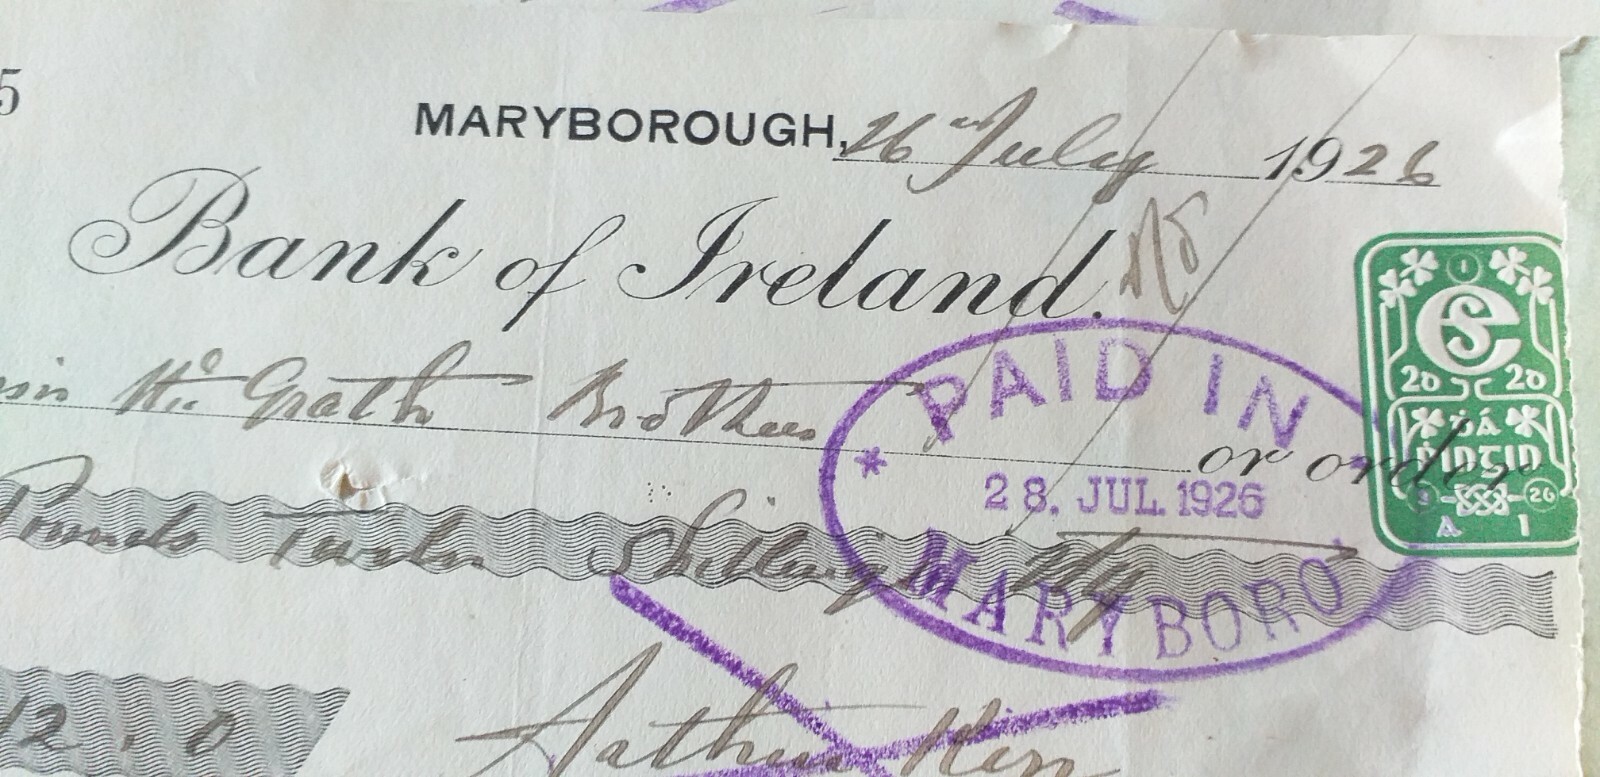 5
MARYBOROUGH, 26th July 1926
Bank of Ireland.
Mc Grath Brothers or order
Pounds Twelve Shillings
12 . 0
PAID IN
* 28. JUL 1926
MARYBORO'
SE
20 20
DÁ
ṖINGIN
9 26
A 1